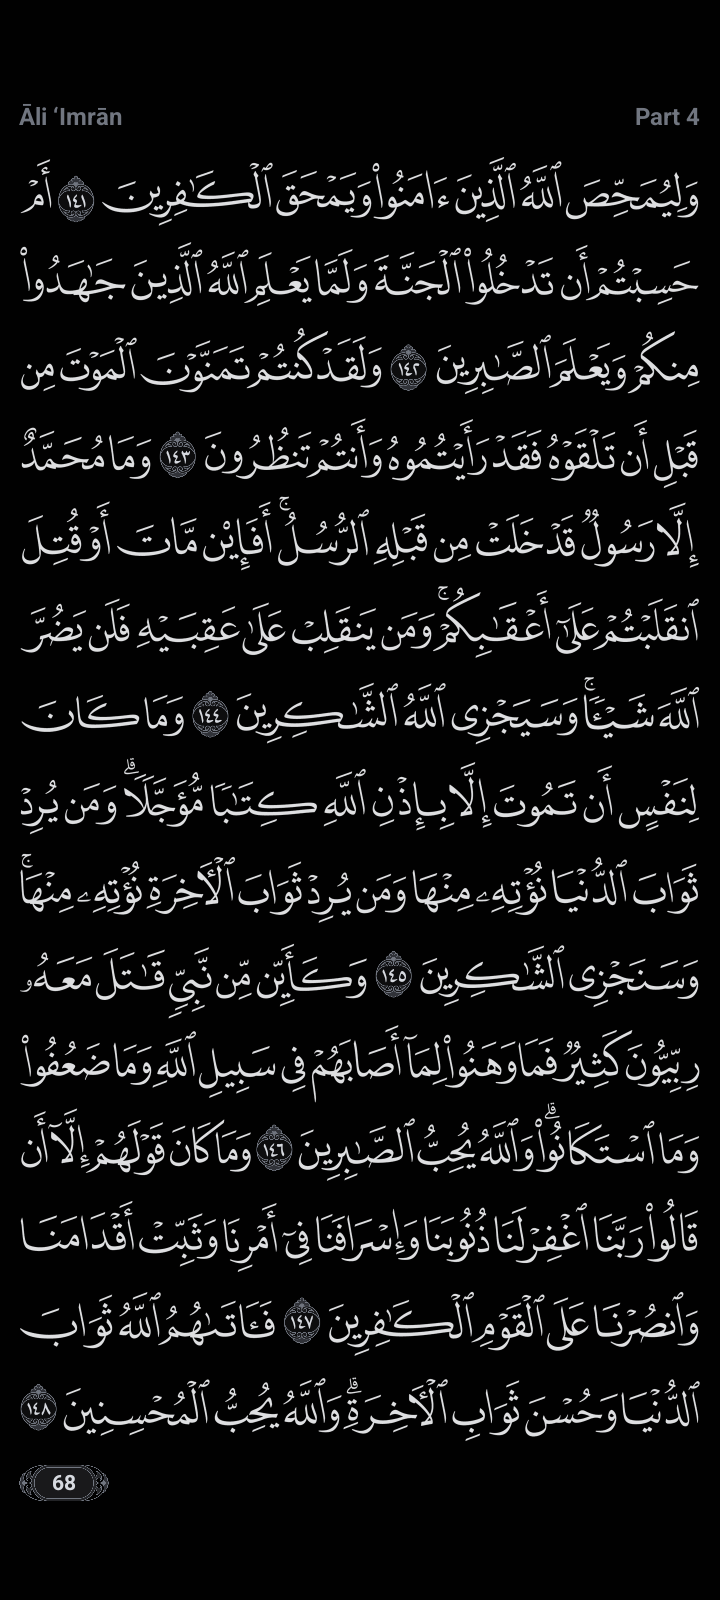 Āli ‘Imrān
Part 4
وَلِيُمَحِّصَ ٱللَّهُ ٱلَّذِينَ ءَامَنُوا۟ وَيَمْحَقَ ٱلْكَـٰفِرِينَ ١٤١ أَمْ
حَسِبْتُمْ أَن تَدْخُلُوا۟ ٱلْجَنَّةَ وَلَمَّا يَعْلَمِ ٱللَّهُ ٱلَّذِينَ جَـٰهَدُوا۟
مِنكُمْ وَيَعْلَمَ ٱلصَّـٰبِرِينَ ١٤٢ وَلَقَدْ كُنتُمْ تَمَنَّوْنَ ٱلْمَوْتَ مِن
قَبْلِ أَن تَلْقَوْهُ فَقَدْ رَأَيْتُمُوهُ وَأَنتُمْ تَنظُرُونَ ١٤٣ وَمَا مُحَمَّدٌ
إِلَّا رَسُولٌ قَدْ خَلَتْ مِن قَبْلِهِ ٱلرُّسُلُ ۚ أَفَإِي۟ن مَّاتَ أَوْ قُتِلَ
ٱنقَلَبْتُمْ عَلَىٰٓ أَعْقَـٰبِكُمْ ۚ وَمَن يَنقَلِبْ عَلَىٰ عَقِبَيْهِ فَلَن يَضُرَّ
ٱللَّهَ شَيْـًٔا ۗ وَسَيَجْزِى ٱللَّهُ ٱلشَّـٰكِرِينَ ١٤٤ وَمَا كَانَ
لِنَفْسٍ أَن تَمُوتَ إِلَّا بِإِذْنِ ٱللَّهِ كِتَـٰبًا مُّؤَجَّلًا ۗ وَمَن يُرِدْ
ثَوَابَ ٱلدُّنْيَا نُؤْتِهِۦ مِنْهَا وَمَن يُرِدْ ثَوَابَ ٱلْـَٔاخِرَةِ نُؤْتِهِۦ مِنْهَا ۚ
وَسَنَجْزِى ٱلشَّـٰكِرِينَ ١٤٥ وَكَأَيِّن مِّن نَّبِىٍّ قَـٰتَلَ مَعَهُۥ
رِبِّيُّونَ كَثِيرٌ فَمَا وَهَنُوا۟ لِمَآ أَصَابَهُمْ فِى سَبِيلِ ٱللَّهِ وَمَا ضَعُفُوا۟
وَمَا ٱسْتَكَانُوا۟ ۗ وَٱللَّهُ يُحِبُّ ٱلصَّـٰبِرِينَ ١٤٦ وَمَا كَانَ قَوْلَهُمْ إِلَّآ أَن
قَالُوا۟ رَبَّنَا ٱغْفِرْ لَنَا ذُنُوبَنَا وَإِسْرَافَنَا فِىٓ أَمْرِنَا وَثَبِّتْ أَقْدَامَنَا
وَٱنصُرْنَا عَلَى ٱلْقَوْمِ ٱلْكَـٰفِرِينَ ١٤٧ فَـَٔاتَىٰهُمُ ٱللَّهُ ثَوَابَ
ٱلدُّنْيَا وَحُسْنَ ثَوَابِ ٱلْـَٔاخِرَةِ ۗ وَٱللَّهُ يُحِبُّ ٱلْمُحْسِنِينَ ١٤٨
68